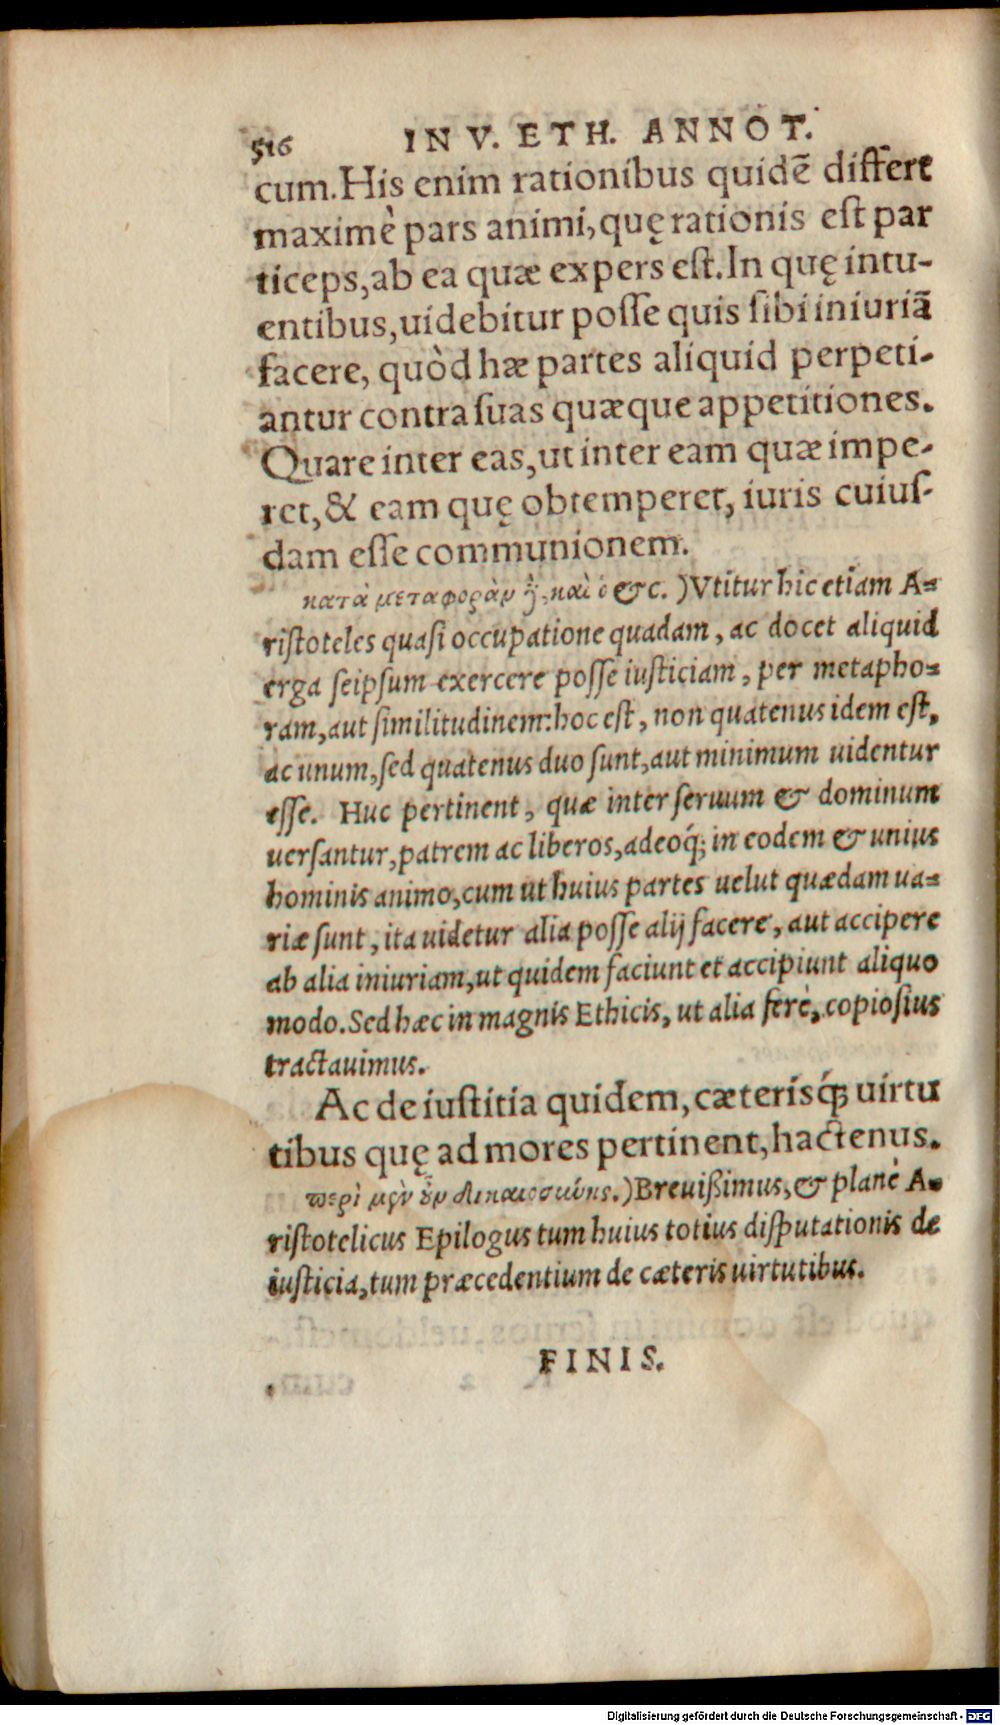 516 IN V. ETH. ANNOT.
cum. His enim rationibus quidē differt
maximè pars animi, quę rationis est par
ticeps, ab ea quæ expers est. In quę intu-
entibus, uidebitur posse quis sibi iniuriā
facere, quòd hæ partes aliquid perpeti-
antur contra suas quæque appetitiones.
Quare inter eas, ut inter eam quæ impe-
ret, & eam quę obtemperet, iuris cuius-
dam esse communionem.
κατὰ μεταφορὰν ἢ, καὶ ὁ &c. ) Vtitur hic etiam A-
ristoteles quasi occupatione quadam, ac docet aliquid
erga seipsum exercere posse iusticiam, per metapho-
ram, aut similitudinem: hoc est, non quatenus idem est,
ac unum, sed quatenus duo sunt, aut minimum uidentur
esse. Huc pertinent, quæ inter seruum & dominum
uersantur, patrem ac liberos, adeoq́; in eodem & unius
hominis animo, cum ut huius partes uelut quædam ua-
riæ sunt, ita uidetur alia posse alij facere, aut accipere
ab alia iniuriam, ut quidem faciunt et accipiunt aliquo
modo. Sed hæc in magnis Ethicis, ut alia ferè, copiosius
tractauimus.
Ac de iustitia quidem, cæterisq́; uirtu
tibus quę ad mores pertinent, hactenus.
περὶ μὲν ἓν δικαιοσύνης. ) Breuißimus, & planè A-
ristotelicus Epilogus tum huius totius disputationis de
iusticia, tum præcedentium de cæteris uirtutibus.
FINIS.
Digitalisierung gefördert durch die Deutsche Forschungsgemeinschaft - DFG